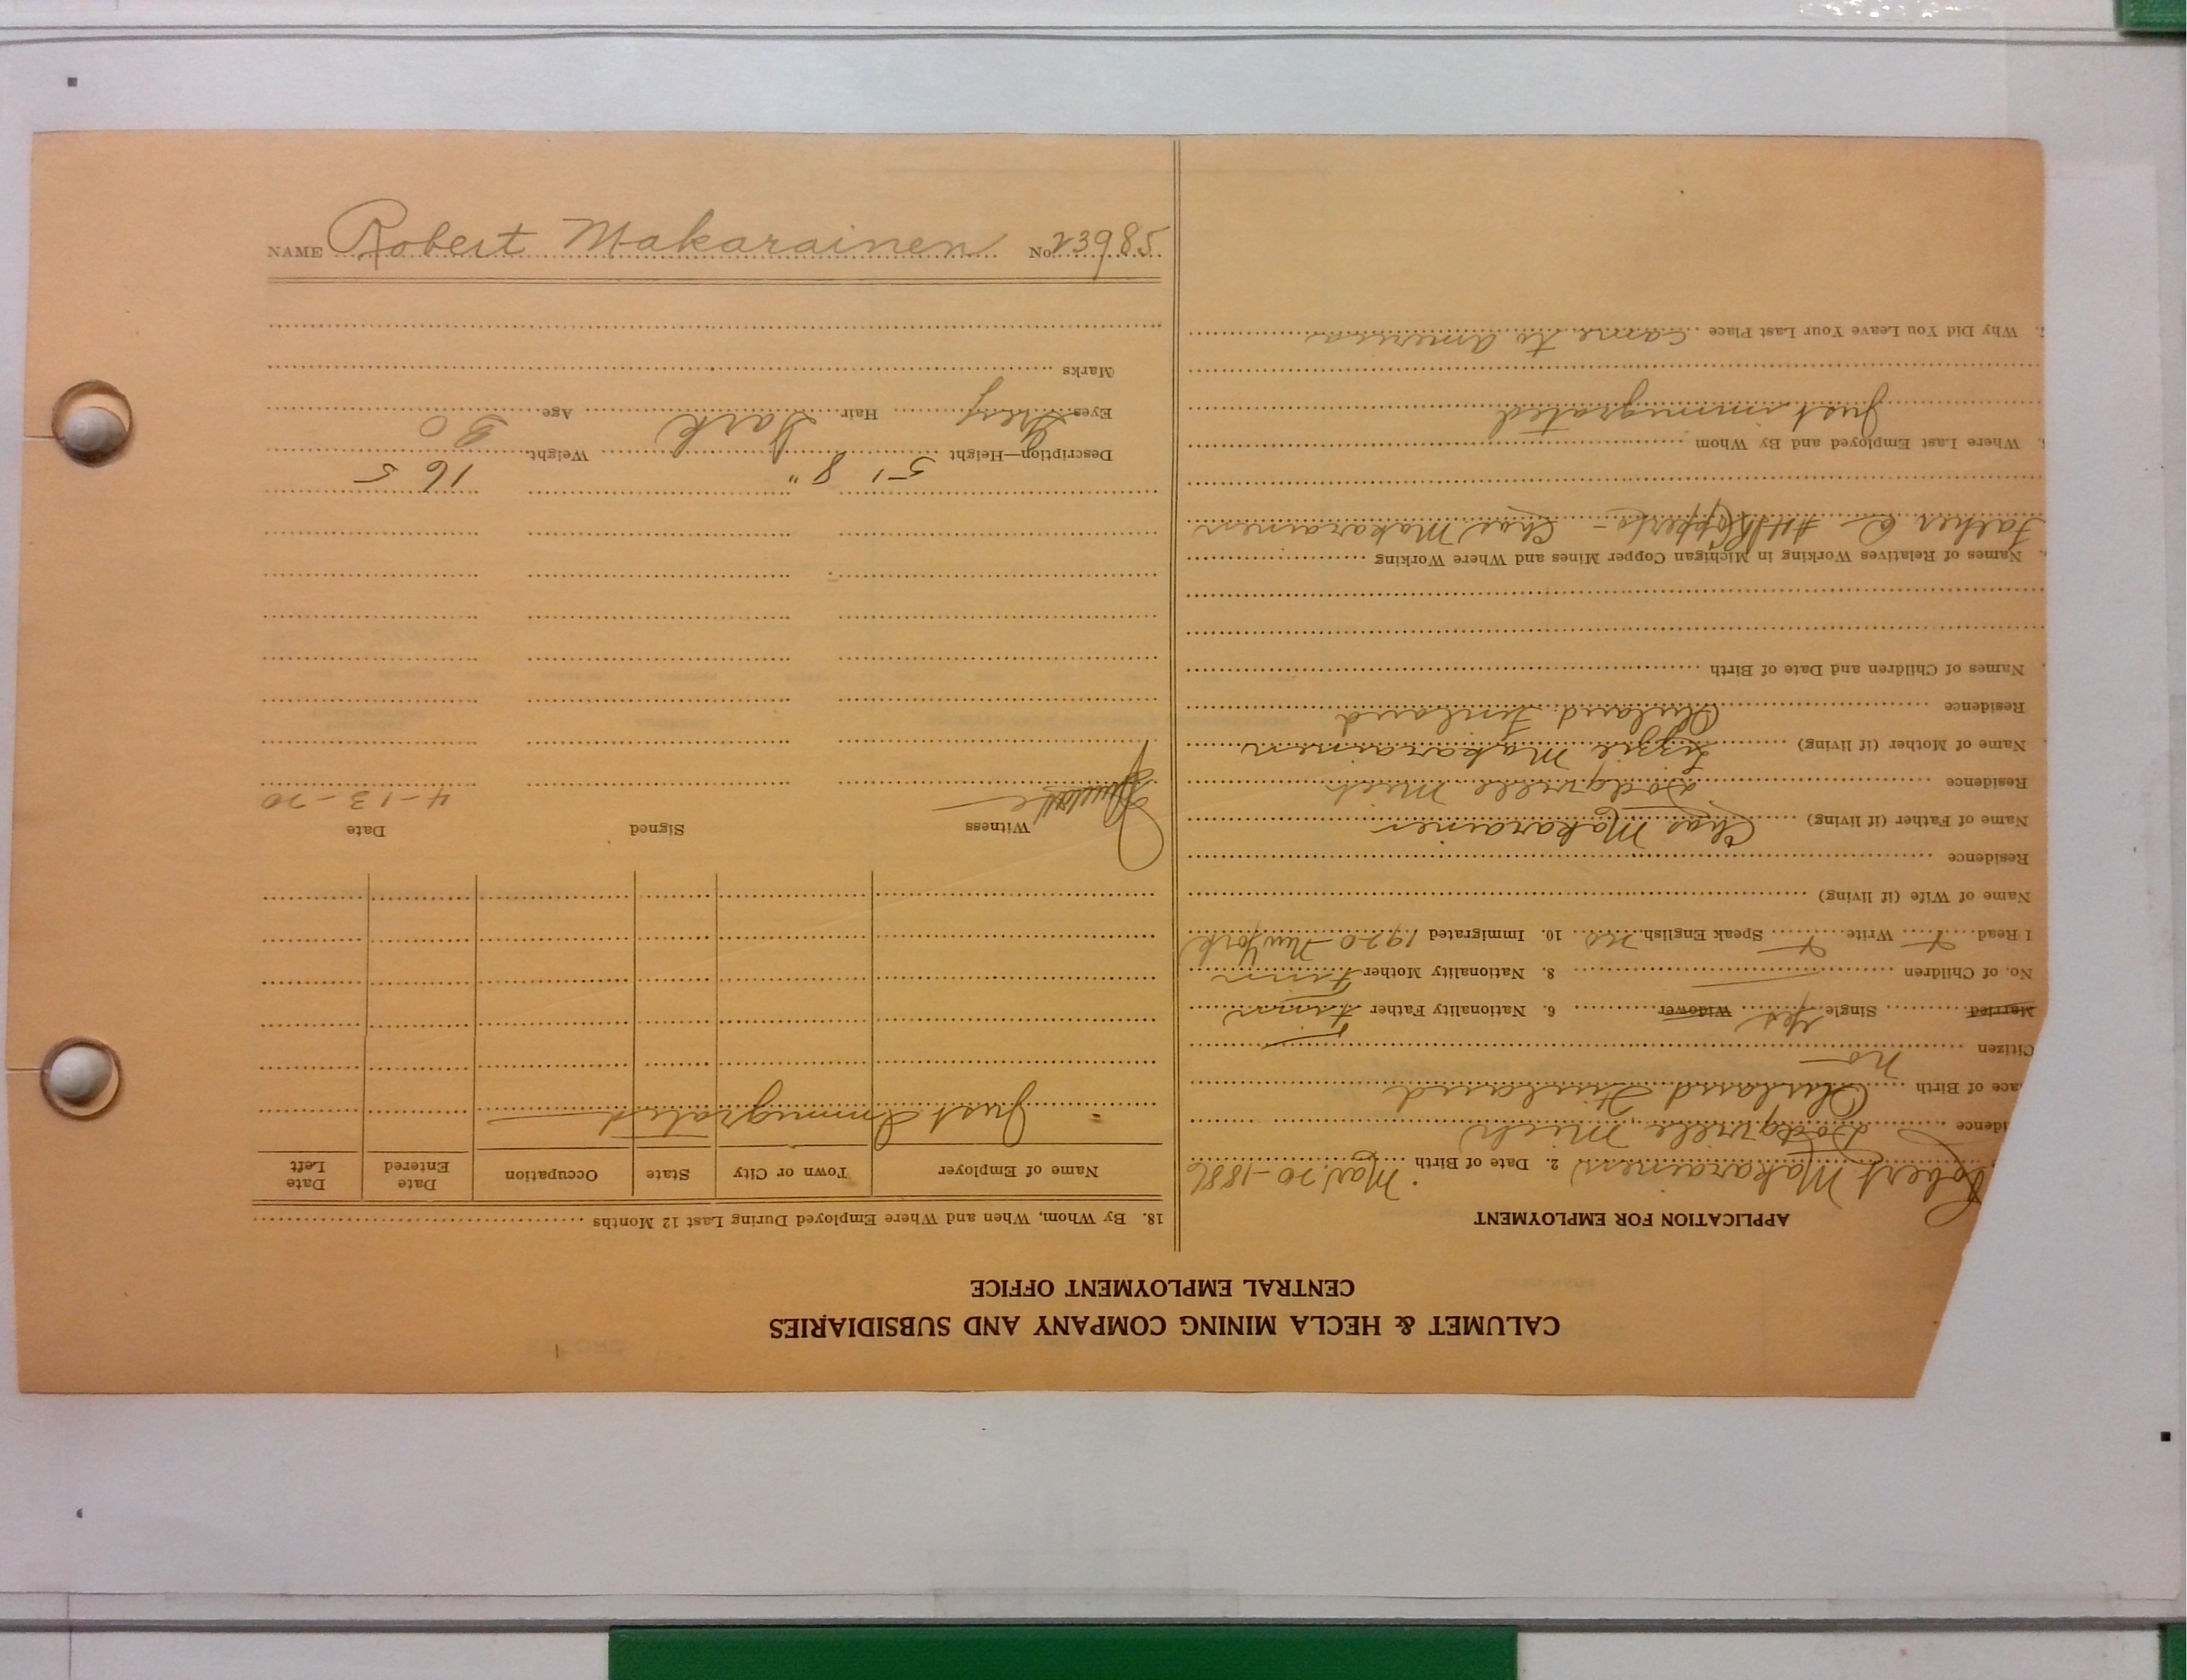 CALUMET & HECLA MINING COMPANY AND SUBSIDIARIES
CENTRAL EMPLOYMENT OFFICE
APPLICATION FOR EMPLOYMENT
Robert Makarainen 2. Date of Birth Mar. 20-1886
idence Dodgville Mich
ace of Birth Finland
Citizen no
Married Single yes Widower 6. Nationality Father Finn
No. of Children 8. Nationality Mother Finn
I Read x Write x Speak English no 10. Immigrated 1920-New York
Name of Wife (if living)
Residence
Name of Father (if living) Chas Makarainen
Residence Dodgville Mich
Name of Mother (if living) Lizzie Makarainen
Residence Finland
Names of Children and Date of Birth
Names of Relatives Working in Michigan Copper Mines and Where Working
Father @ - Chas Makarainen
Where Last Employed and By Whom
Just immigrated
Why Did You Leave Your Last Place came to america
18. By Whom, When and Where Employed During Last 12 Months
Name of Employer Town or City State Occupation Date Entered Date Left
Just Immigrated
Witness Signed Date
4-13-20
5' 8" 165
Description—Height Weight
Grey Dark 30
Eyes Hair Age
Marks
NAME Robert Makarainen No. 23985